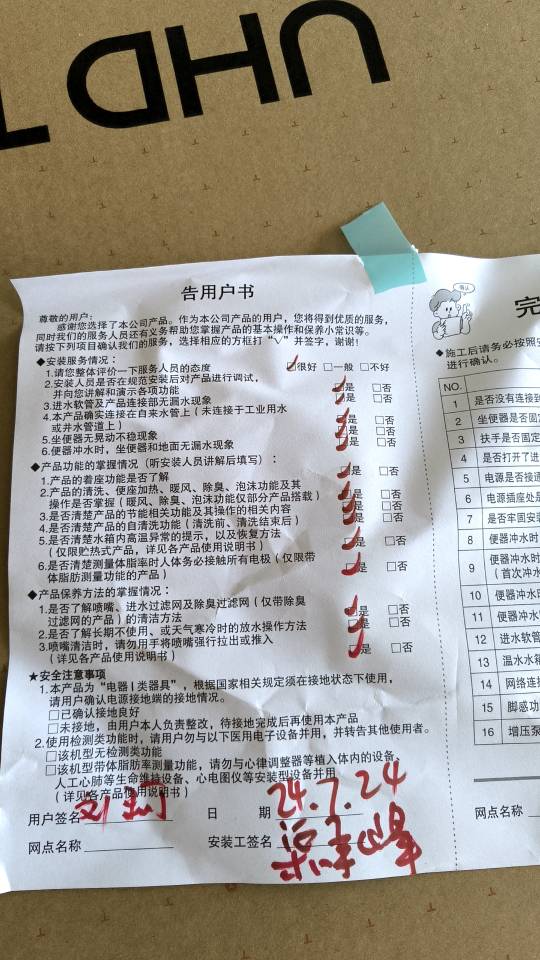 UHD
告用户书
尊敬的用户：
感谢您选择了本公司产品。作为本公司产品的用户，您将得到优质的服务，
同时我们的服务人员还有义务帮助您掌握产品的基本操作和保养小常识等。
请按下列项目确认我们的服务，选择相应的方框打“√”并签字，谢谢！
◆安装服务情况：
1.请您整体评价一下服务人员的态度 ☑很好 □一般 □不好
2.安装人员是否在规范安装后对产品进行调试，
并向您讲解和演示各项功能 ☑是 □否
3.进水软管及产品连接部无漏水现象 ☑是 □否
4.本产品确实连接在自来水管上（未连接于工业用水
或井水管道上） ☑是 □否
5.坐便器无晃动不稳现象 ☑是 □否
6.便器冲水时，坐便器和地面无漏水现象 ☑是 □否
◆产品功能的掌握情况（听安装人员讲解后填写）：
1.产品的着座功能是否了解 ☑是 □否
2.产品的清洗、便座加热、暖风、除臭、泡沫功能及其
操作是否掌握（暖风、除臭、泡沫功能仅部分产品搭载） ☑是 □否
3.是否清楚产品的节能相关功能及其操作的相关内容 ☑是 □否
4.是否清楚产品的自清洗功能（清洗前、清洗结束后） ☑是 □否
5.是否清楚水箱内高温异常的提示，以及恢复方法
（仅限贮热式产品，详见各产品使用说明书） ☑是 □否
6.是否清楚测量体脂率时人体务必接触所有电极（仅限带
体脂肪测量功能的产品） ☑是 □否
◆产品保养方法的掌握情况：
1.是否了解喷嘴、进水过滤网及除臭过滤网（仅带除臭
过滤网的产品）的清洁方法 ☑是 □否
2.是否了解长期不使用、或天气寒冷时的放水操作方法 ☑是 □否
3.喷嘴清洁时，请勿用手将喷嘴强行拉出或推入
（详见各产品使用说明书） ☑是 □否
★安全注意事项
1.本产品为“电器Ⅰ类器具”，根据国家相关规定须在接地状态下使用，
请用户确认电源接地端的接地情况。
□已确认接地良好
□未接地，由用户本人负责整改，待接地完成后再使用本产品
2.使用检测类功能时，请用户勿与以下医用电子设备并用，并转告其他使用者。
□该机型无检测类功能
□该机型带体脂肪率测量功能，请勿与心律调整器等植入体内的设备、
人工心肺等生命维持设备、心电图仪等安装型设备并用
（详见各产品使用说明书）
用户签名 日 期 24.7.24
网点名称 安装工签名
确认
完
◆施工后请务必按照安
进行确认。
NO.
1 是否没有连接到
2 坐便器是否固定
3 扶手是否固定
4 是否打开了进
5 电源是否接通
6 电源插座处是
7 是否牢固安
8 便器冲水时
9 便器冲水时
（首次冲水
10 便器冲水时
11 便器冲水
12 进水软管
13 温水水箱
14 网络连接
15 脚感功
16 增压泵
网点名称